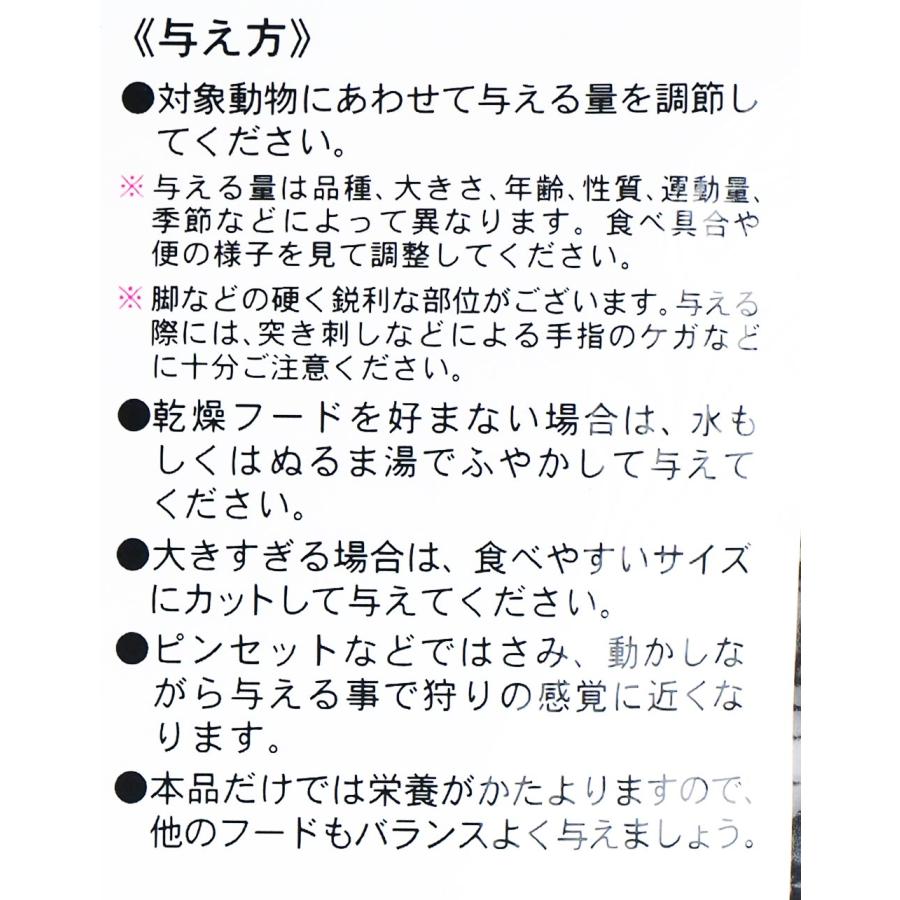 《与え方》
●対象動物にあわせて与える量を調節し
てください。
※与える量は品種、大きさ、年齢、性質、運動量、
季節などによって異なります。食べ具合や
便の様子を見て調整してください。
※脚などの硬く鋭利な部位がございます。与える
際には、突き刺しなどによる手指のケガなど
に十分ご注意ください。
●乾燥フードを好まない場合は、水も
しくはぬるま湯でふやかして与えて
ください。
●大きすぎる場合は、食べやすいサイズ
にカットして与えてください。
●ピンセットなどではさみ、動かしな
がら与える事で狩りの感覚に近くな
ります。
●本品だけでは栄養がかたよりますので、
他のフードもバランスよく与えましょう。